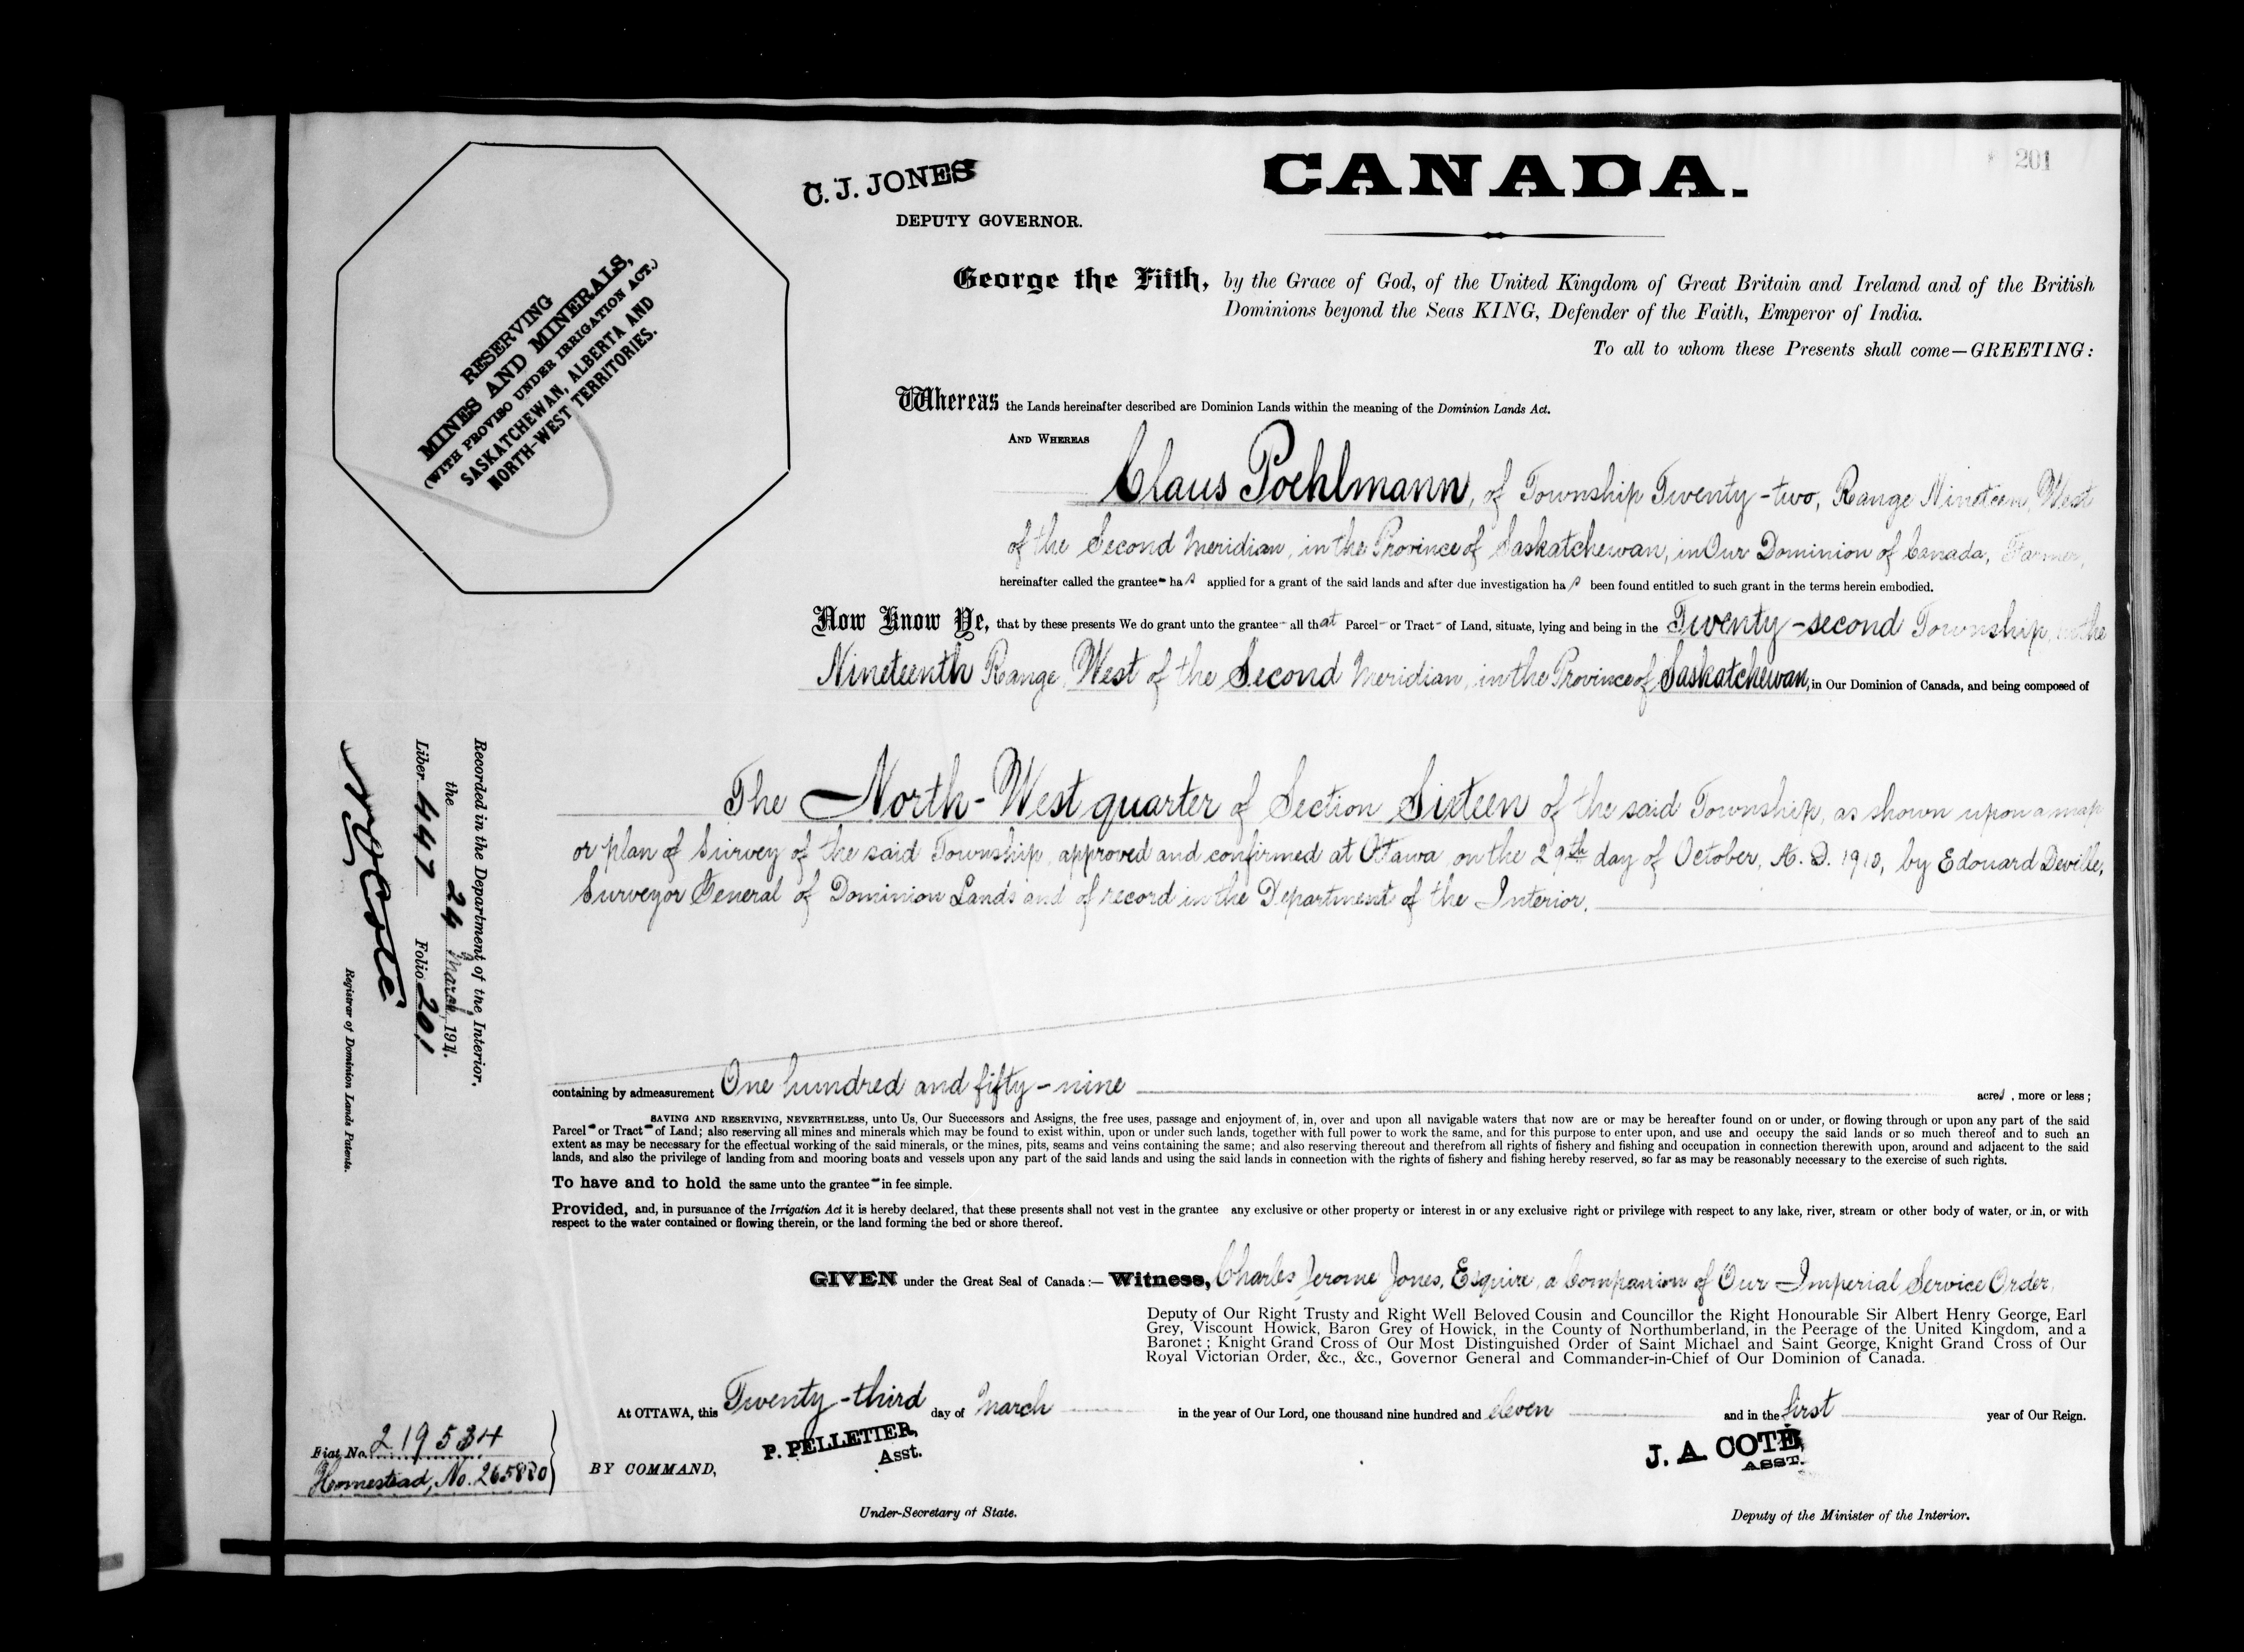 201
C. J. JONES
DEPUTY GOVERNOR.
CANADA.
RESERVING
MINES AND MINERALS,
(WITH PROVISO UNDER IRRIGATION ACT.)
SASKATCHEWAN, ALBERTA AND
NORTH-WEST TERRITORIES.
George the Fifth, by the Grace of God, of the United Kingdom of Great Britain and Ireland and of the British
Dominions beyond the Seas KING, Defender of the Faith, Emperor of India.
To all to whom these Presents shall come—GREETING:
Whereas the Lands hereinafter described are Dominion Lands within the meaning of the Dominion Lands Act.
AND WHEREAS
Claus Poehlmann, of Township Twenty-two, Range Nineteen, West
of the Second Meridian, in the Province of Saskatchewan, in Our Dominion of Canada, Farmer,
hereinafter called the grantee has applied for a grant of the said lands and after due investigation has been found entitled to such grant in the terms herein embodied.
Now Know Ye, that by these presents We do grant unto the grantee all that Parcel or Tract of Land, situate, lying and being in the Twenty-second Township, in the
Nineteenth Range, West of the Second Meridian, in the Province of Saskatchewan, in Our Dominion of Canada, and being composed of
The North-West quarter of Section Sixteen of the said Township, as shown upon a map
or plan of Survey of the said Township, approved and confirmed at Ottawa, on the 29th day of October, A. D. 1910, by Edouard Deville,
Surveyor General of Dominion Lands and of record in the Department of the Interior.
Recorded in the Department of the Interior,
the 24 March, 1911.
Liber 447 Folio 201
N O Coté
Registrar of Dominion Lands Patents.
containing by admeasurement One hundred and fifty-nine acres, more or less;
SAVING AND RESERVING, NEVERTHELESS, unto Us, Our Successors and Assigns, the free uses, passage and enjoyment of, in, over and upon all navigable waters that now are or may be hereafter found on or under, or flowing through or upon any part of the said
Parcel or Tract of Land; also reserving all mines and minerals which may be found to exist within, upon or under such lands, together with full power to work the same, and for this purpose to enter upon, and use and occupy the said lands or so much thereof and to such an
extent as may be necessary for the effectual working of the said minerals, or the mines, pits, seams and veins containing the same; and also reserving thereout and therefrom all rights of fishery and fishing and occupation in connection therewith upon, around and adjacent to the said
lands, and also the privilege of landing from and mooring boats and vessels upon any part of the said lands and using the said lands in connection with the rights of fishery and fishing hereby reserved, so far as may be reasonably necessary to the exercise of such rights.
To have and to hold the same unto the grantee in fee simple.
Provided, and, in pursuance of the Irrigation Act it is hereby declared, that these presents shall not vest in the grantee any exclusive or other property or interest in or any exclusive right or privilege with respect to any lake, river, stream or other body of water, or in, or with
respect to the water contained or flowing therein, or the land forming the bed or shore thereof.
GIVEN under the Great Seal of Canada:— Witness, Charles Jerome Jones, Esquire, a Companion of Our Imperial Service Order,
Deputy of Our Right Trusty and Right Well Beloved Cousin and Councillor the Right Honourable Sir Albert Henry George, Earl
Grey, Viscount Howick, Baron Grey of Howick, in the County of Northumberland, in the Peerage of the United Kingdom, and a
Baronet; Knight Grand Cross of Our Most Distinguished Order of Saint Michael and Saint George, Knight Grand Cross of Our
Royal Victorian Order, &c., &c., Governor General and Commander-in-Chief of Our Dominion of Canada.
At OTTAWA, this Twenty-third day of March in the year of Our Lord, one thousand nine hundred and eleven and in the first year of Our Reign.
P. PELLETIER,
Asst.
J. A. COTE,
ASST.
Fiat No. 219534
Homestead, No. 265820
BY COMMAND,
Under-Secretary of State.
Deputy of the Minister of the Interior.